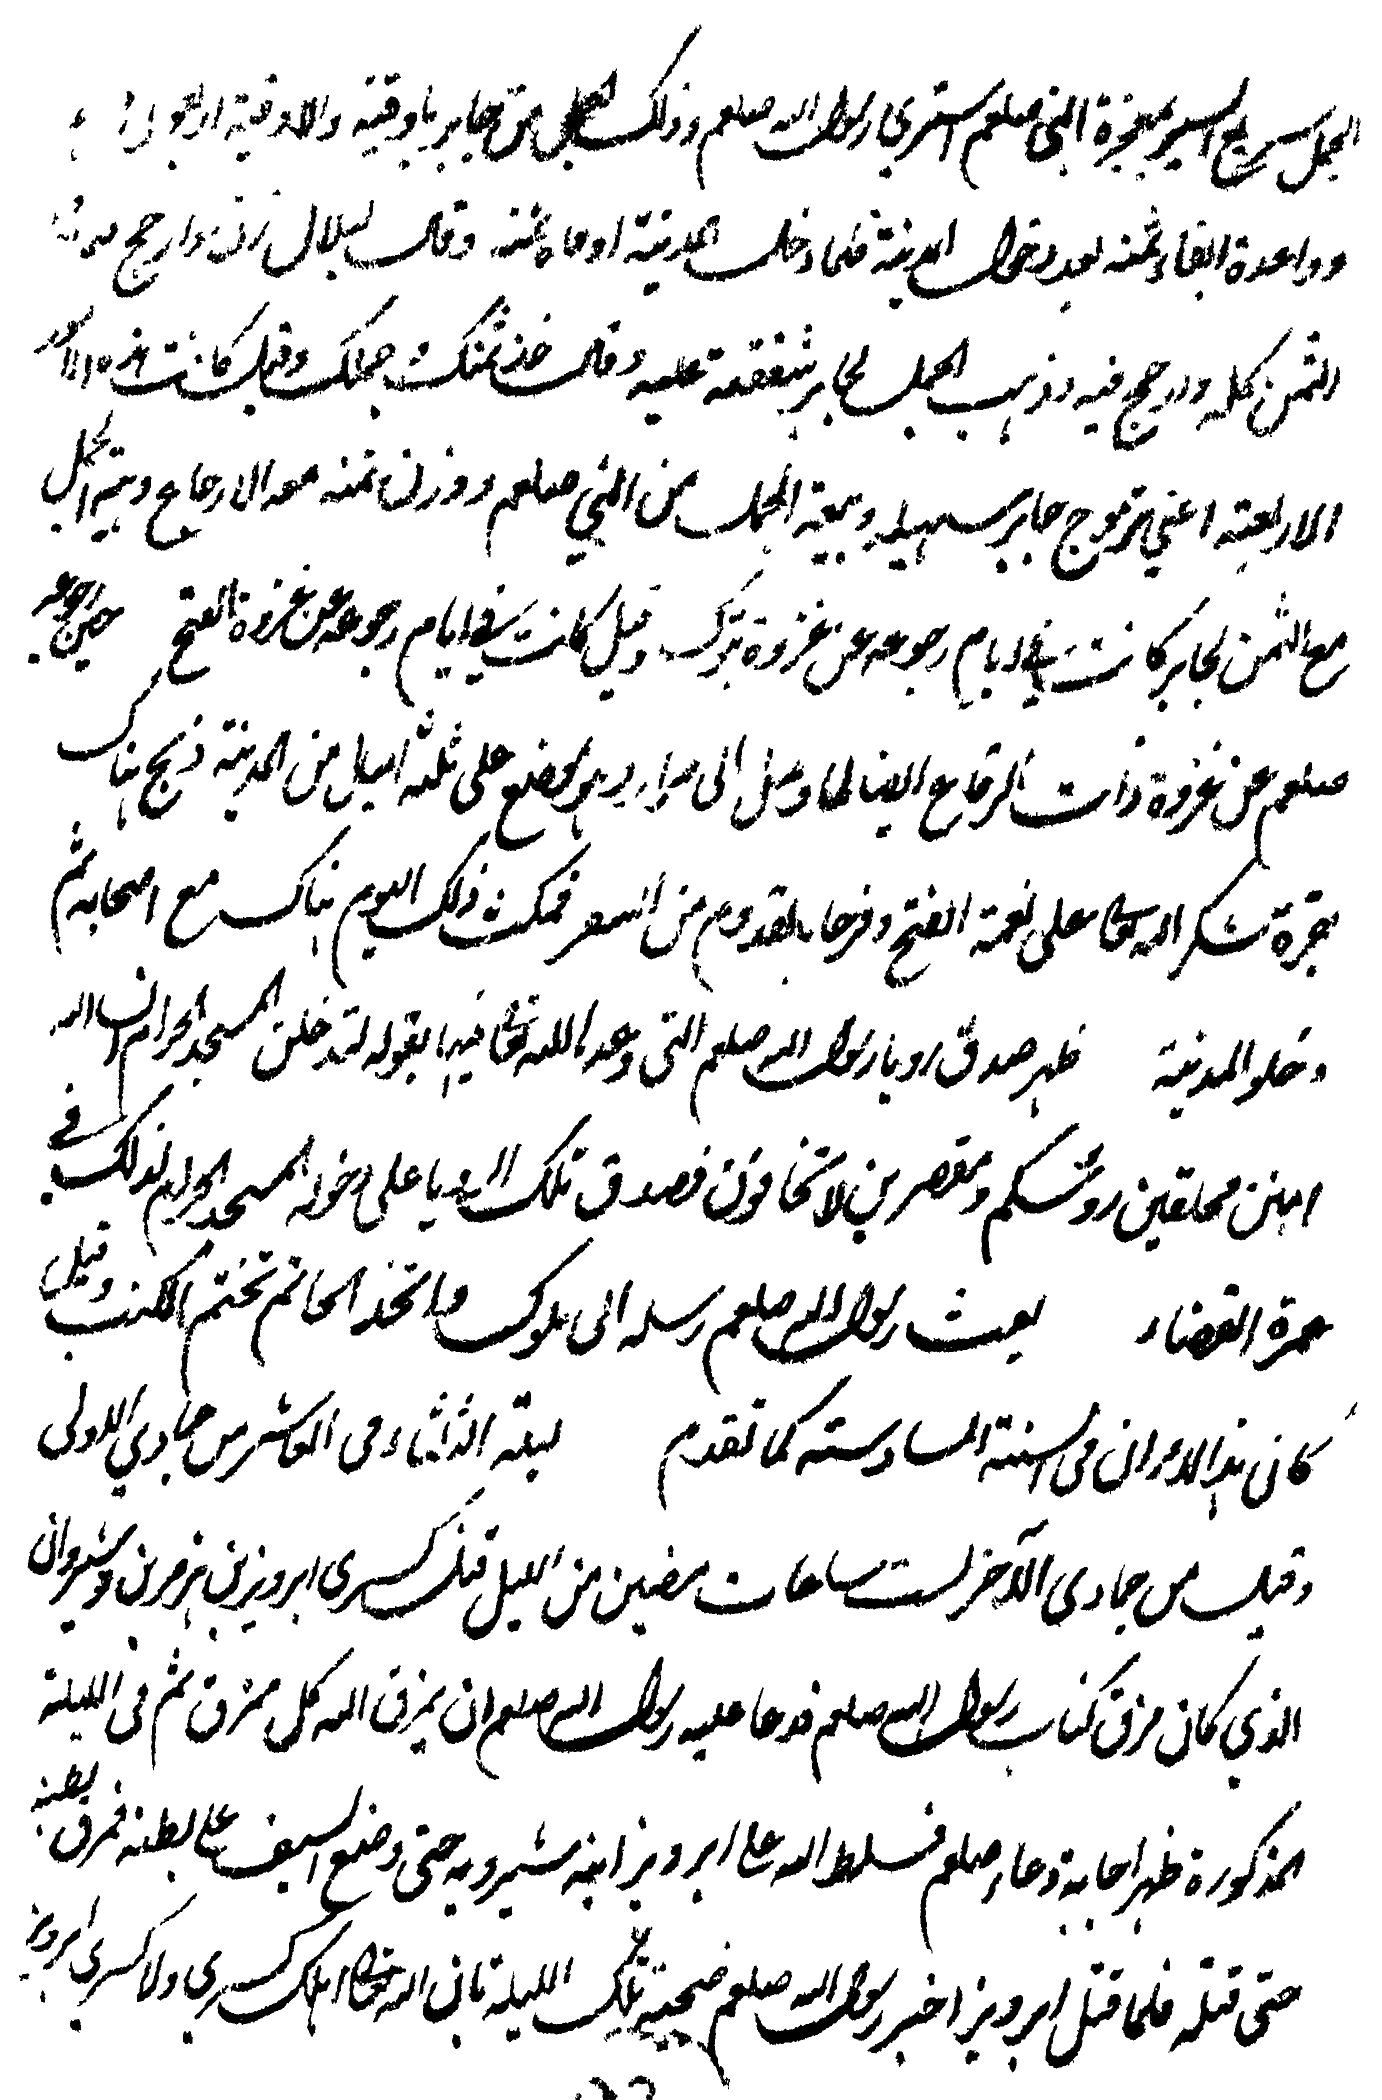 الجمل سريع السير بمعجزة النبي صلعم اشتري رسول الله صلعم وذلك الجمل من جابر باوقية والاوقية اربعون
وواعدة ايفاء ثمنه بعد دخول المدينة فلما دخل المدينة اوفاه ثمنه وقال لبلال زن وارجح
الثمن كله وارجح فيه وذهب الجمل لجابر شفقة عليه وقال خذ ثمنك وجملك وقيل كانت هذه الامور
الاربعة اعني تزوج جابر سهيلة وبيعة الجمل من النبي صلعم ووزن ثمنه معه الارجاع وهبة الجمل
مع الثمن لجابر كانت في ايام رجوعه عن غزوة تبوك وقيل كانت في ايام رجوعه عن غزوة الفتح حين رجوعه
صلعم عن غزوة ذات الرقاع ايضا لما وصل الى صرار وهو موضع على ثلثة اميال من المدينة ذبح هناك
بقرة شكرا لله تعالى على نعمة الفتح وفرحا بالقدوم من السفر فمكث ذلك اليوم هناك مع اصحابه ثم
دخلو المدينة ظهر صدق رويا رسول الله صلعم التي وعد الله تعالى فيها بقوله لتدخلن المسجد الحرام انشاالله
امنين محلقين روسكم ومقصرين لا تخافون فصدق تلك الرويا على دخوله المسجد الحرام لذلك في
عمرة القضاء بعث رسول الله صلعم رسله الى ملوك واتخذ الخاتم تختم الكتب وقيل
كان هذا الامران في السنة السادسة كما تقدم ليلة الثلثاء في العاشر من جمادي الاولى
وقيل من جمادى الآخر لست ساعات مضين من الليل قتل كسرى ابرويز بن هرمز بن نوشيروان
الذي كان مزق كتاب رسول الله صلعم فدعا عليه رسول الله صلعم ان يمزق الله كل ممزق ثم في الليلة
المذكورة ظهر اجابة دعاء صلعم فسلط الله على ابرويز ابنه شيرويه حتى وضع السيف على بطنه فمزق بطنه
حتى قتله فلما قتل ابرويز اخبر رسول الله صلعم صحبته تلك الليلة بان الله تعالى اهلك كسرى ولا كسرى ابرويز